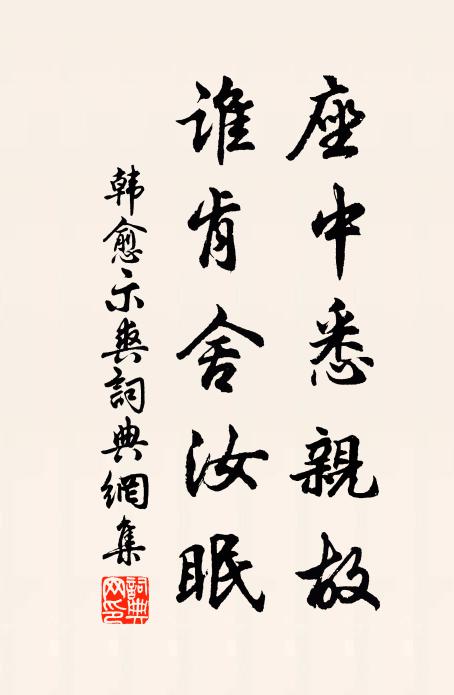 座中悉親故
誰肯舍汝眠
韩愈示爽詞典網集
詞典网印